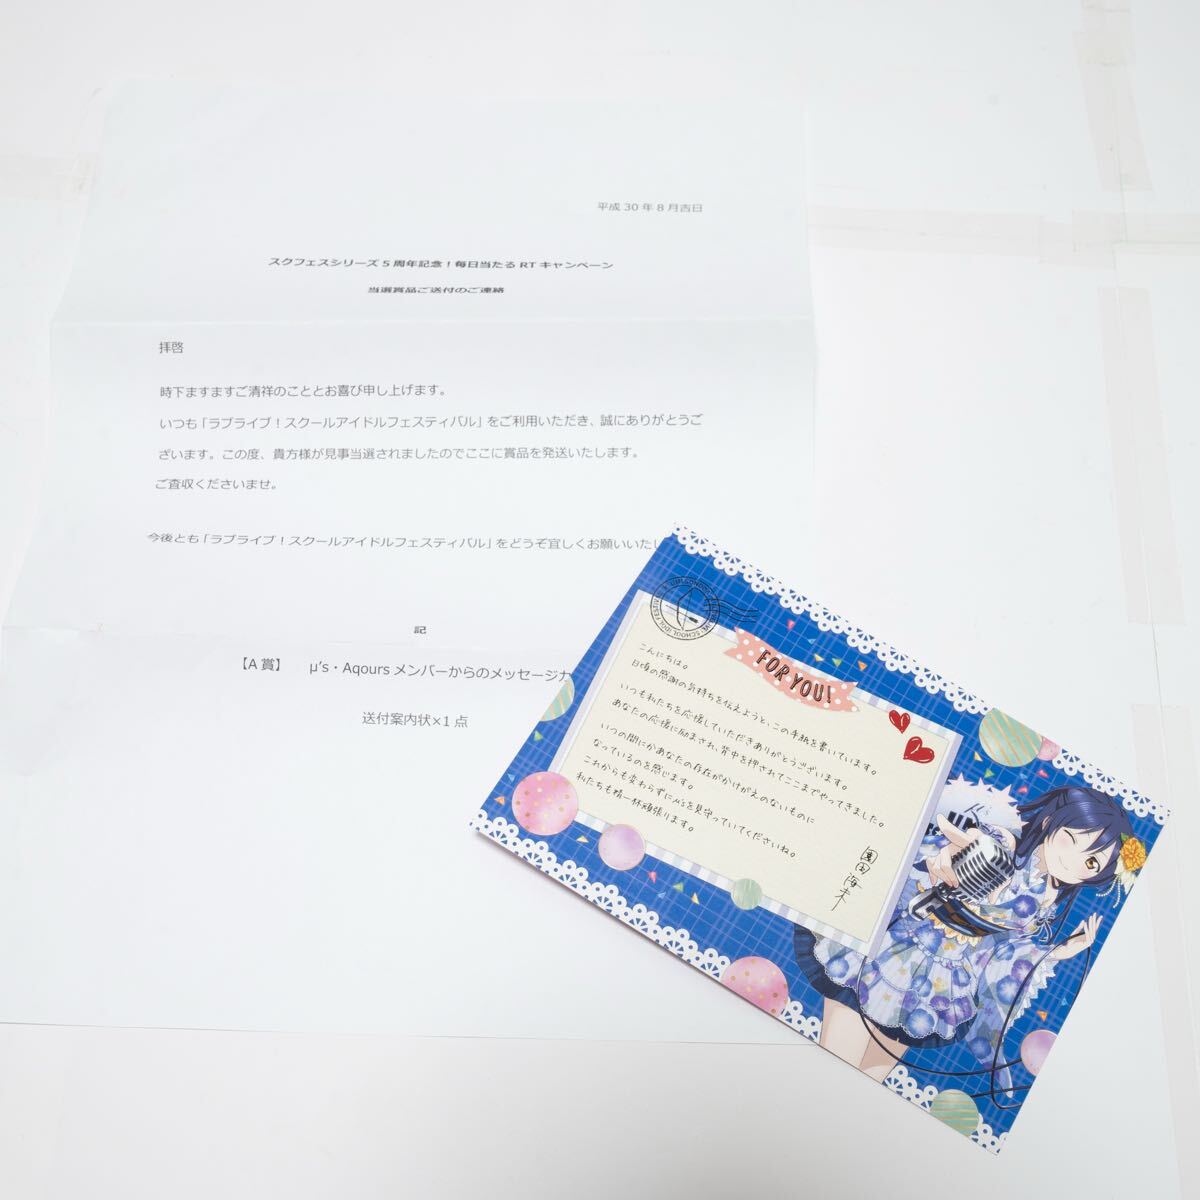 平成 30 年 8 月吉日
スクフェスシリーズ 5 周年記念!毎日当たる RT キャンペーン
当選賞品ご送付のご連絡
拝啓
時下ますますご清祥のこととお喜び申し上げます。
いつも「ラブライブ!スクールアイドルフェスティバル」をご利用いただき、誠にありがとうご
ざいます。この度、貴方様が見事当選されましたのでここに賞品を発送いたします。
ご査収くださいませ。
今後とも「ラブライブ!スクールアイドルフェスティバル」をどうぞ宜しくお願いいたし
記
【A 賞】 μ's・Aqours メンバーからのメッセージカ
送付案内状×1 点
FOR YOU!
こんにちは。
日頃の感謝の気持ちを伝えようと、この手紙を書いています。
いつも私たちを応援していただきありがとうございます。
あなたの応援に励まされ、背中を押されてここまでやってきました。
いつの間にかあなたの存在がかけがえのないものに
なっているのを感じます。
これからも変わらずにμ'sを見守っていてくださいね。
私たちも精一杯頑張ります。
園田 海未